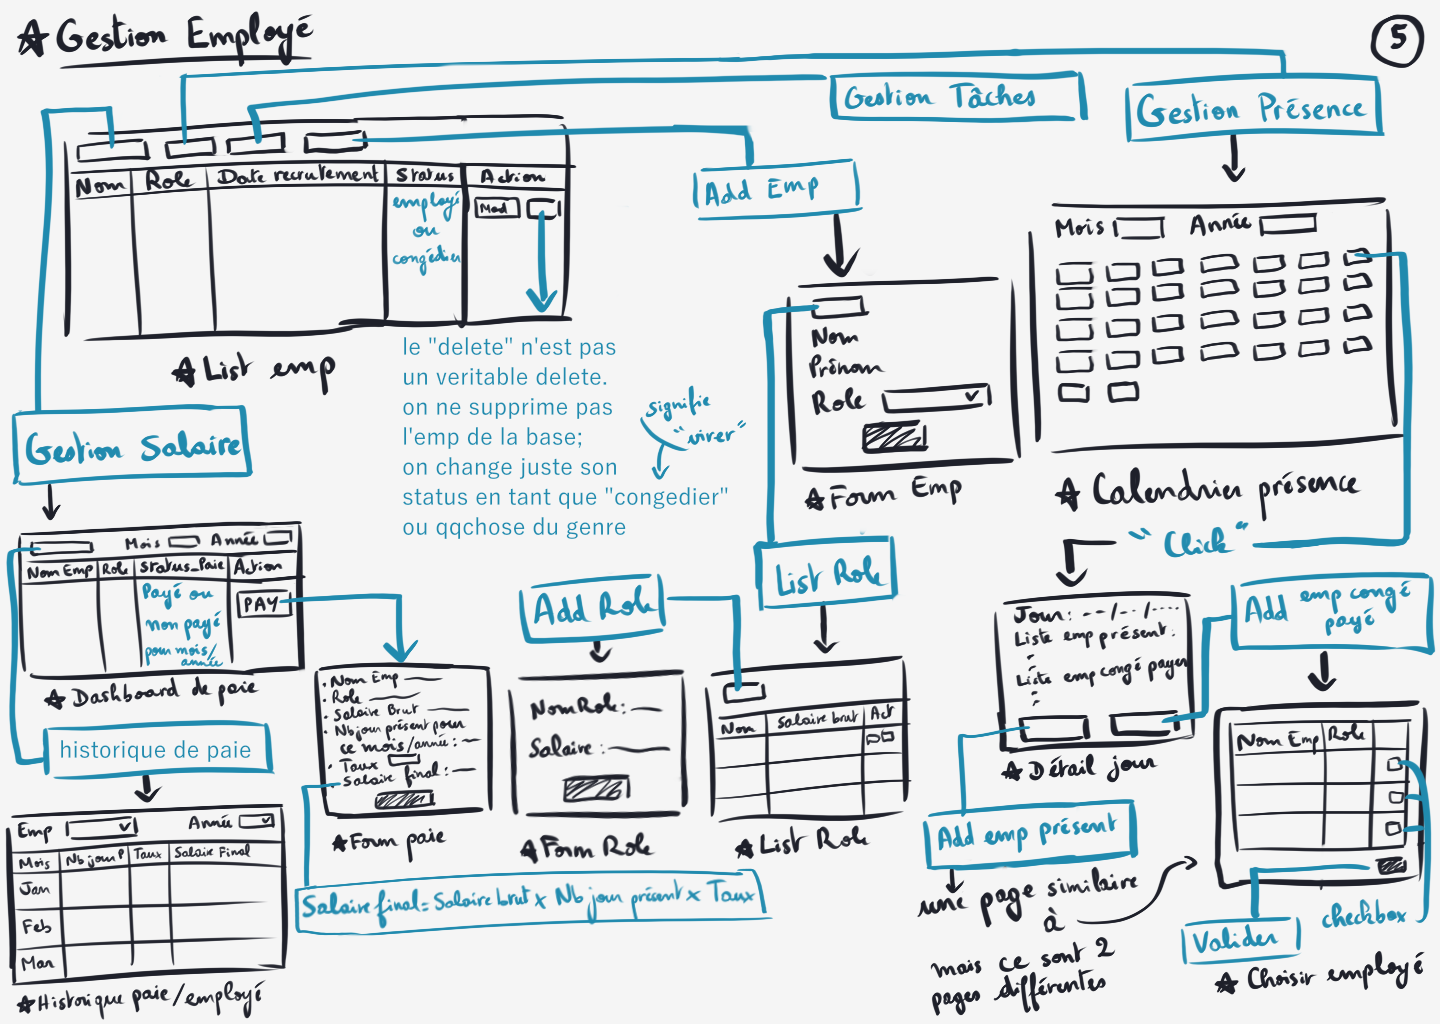 Gestion Employé
5
Gestion Tâches
Gestion Présence
Add Emp
Nom Role Date recrutement Status Action
employé
ou
congédier
Mod
List emp
le "delete" n'est pas
un veritable delete.
on ne supprime pas
l'emp de la base;
on change juste son
status en tant que "congedier"
ou qqchose du genre
signifie
"virer"
Nom
Prénom
Role
Form Emp
Mois Année
Calendrier présence
"Click"
Gestion Salaire
Mois Année
Nom Emp Role Status_Paie Action
Payé ou
non payé
pour mois/
année
PAY
Dashboard de paie
historique de paie
Emp Année
Mois Nb jour P Taux Salaire Final
Jan
Feb
Mar
Historique paie/employé
• Nom Emp
• Role
• Salaire Brut
• Nb jour présent pour
ce mois/année :
• Taux
Salaire final :
Form paie
Salaire final = Salaire brut x Nb jour présent x Taux
Add Role
Nom Role :
Salaire :
Form Role
List Role
Nom Salaire brut Act
List Role
Jour : --/--/----
Liste emp présent :
-
-
Liste emp congé payer
-
-
Détail jour
Add emp congé
payé
Add emp présent
une page similaire
à
mais ce sont 2
pages différentes
Nom Emp Role
Valider
checkbox
Choisir employé